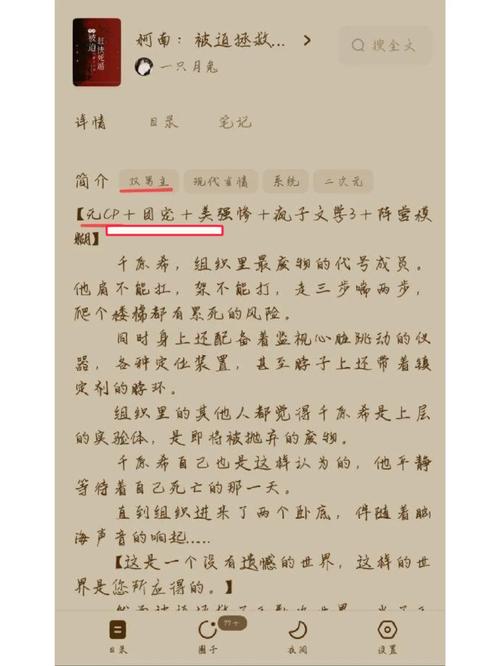 被迫
柯南：被迫拯救...
一只月兔
搜全文
详情 目录 笔记
简介 双男主 现代言情 系统 二次元
【无CP+团宠+美强惨+疯子文学3+阵营模
糊】
千原希，组织里最废物的代号成员。
他肩不能扛，架不能打，走三步喘两步，
爬个楼梯都有累死的风险。
同时身上还配备着监视心脏跳动的仪
器，各种定位装置，甚至脖子上还带着镇
定剂的脖环。
组织里的其他人都觉得千原希是上层
的实验体，是即将被抛弃的废物。
千原希自己也是这样认为的，他平静
等待着自己死亡的那一天。
直到组织进来了两个卧底，伴随着脑
海声音的响起......
【这是一个没有遗憾的世界，这样的世
界是您所应得的。】
99+
目录 圈子 夜间 设置